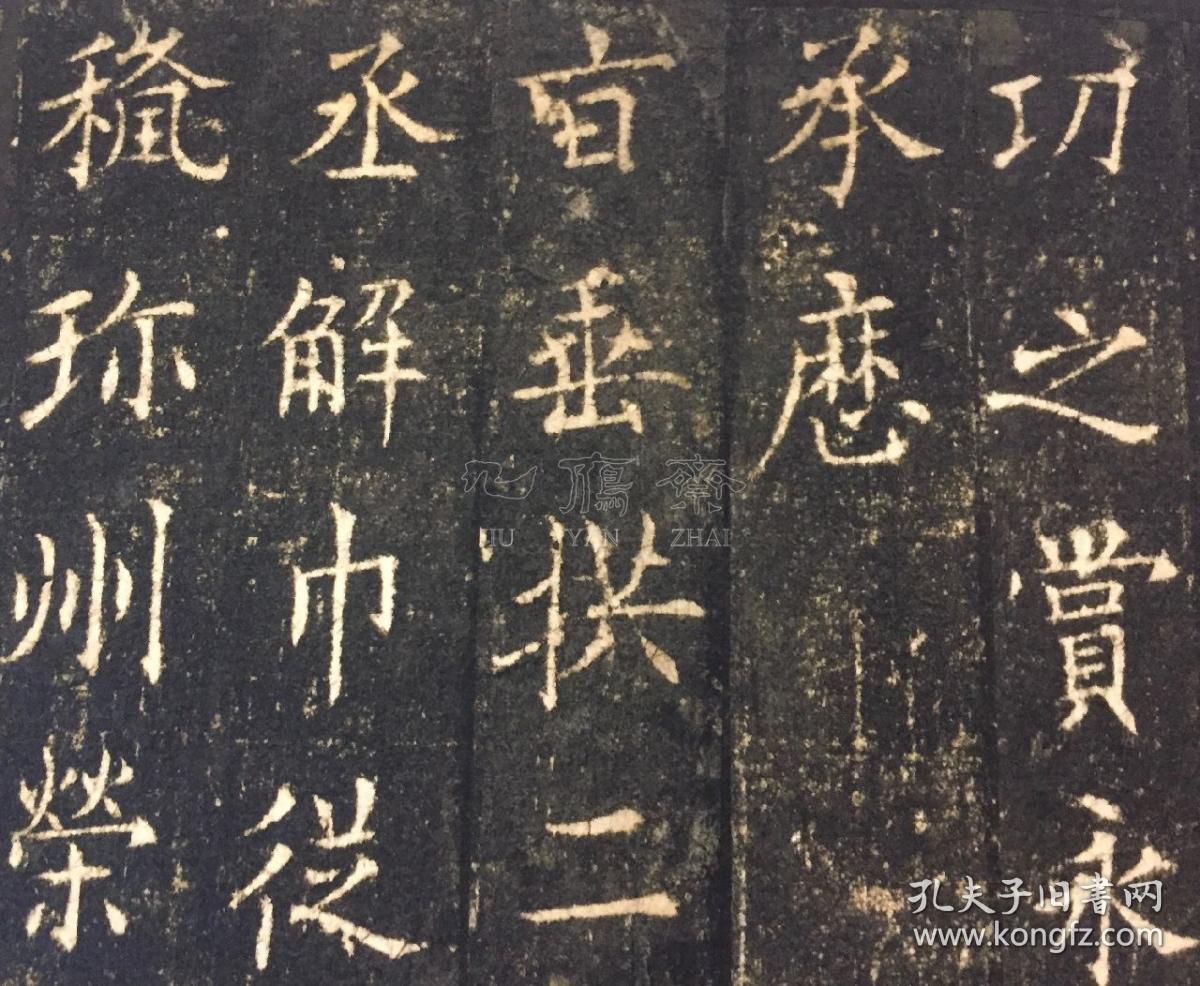 功之賞永
承
垂拱二
丞解巾從
珎州榮
九鴈齋
JIU YAN ZHAI
孔夫子旧書网
www.kongfz.com